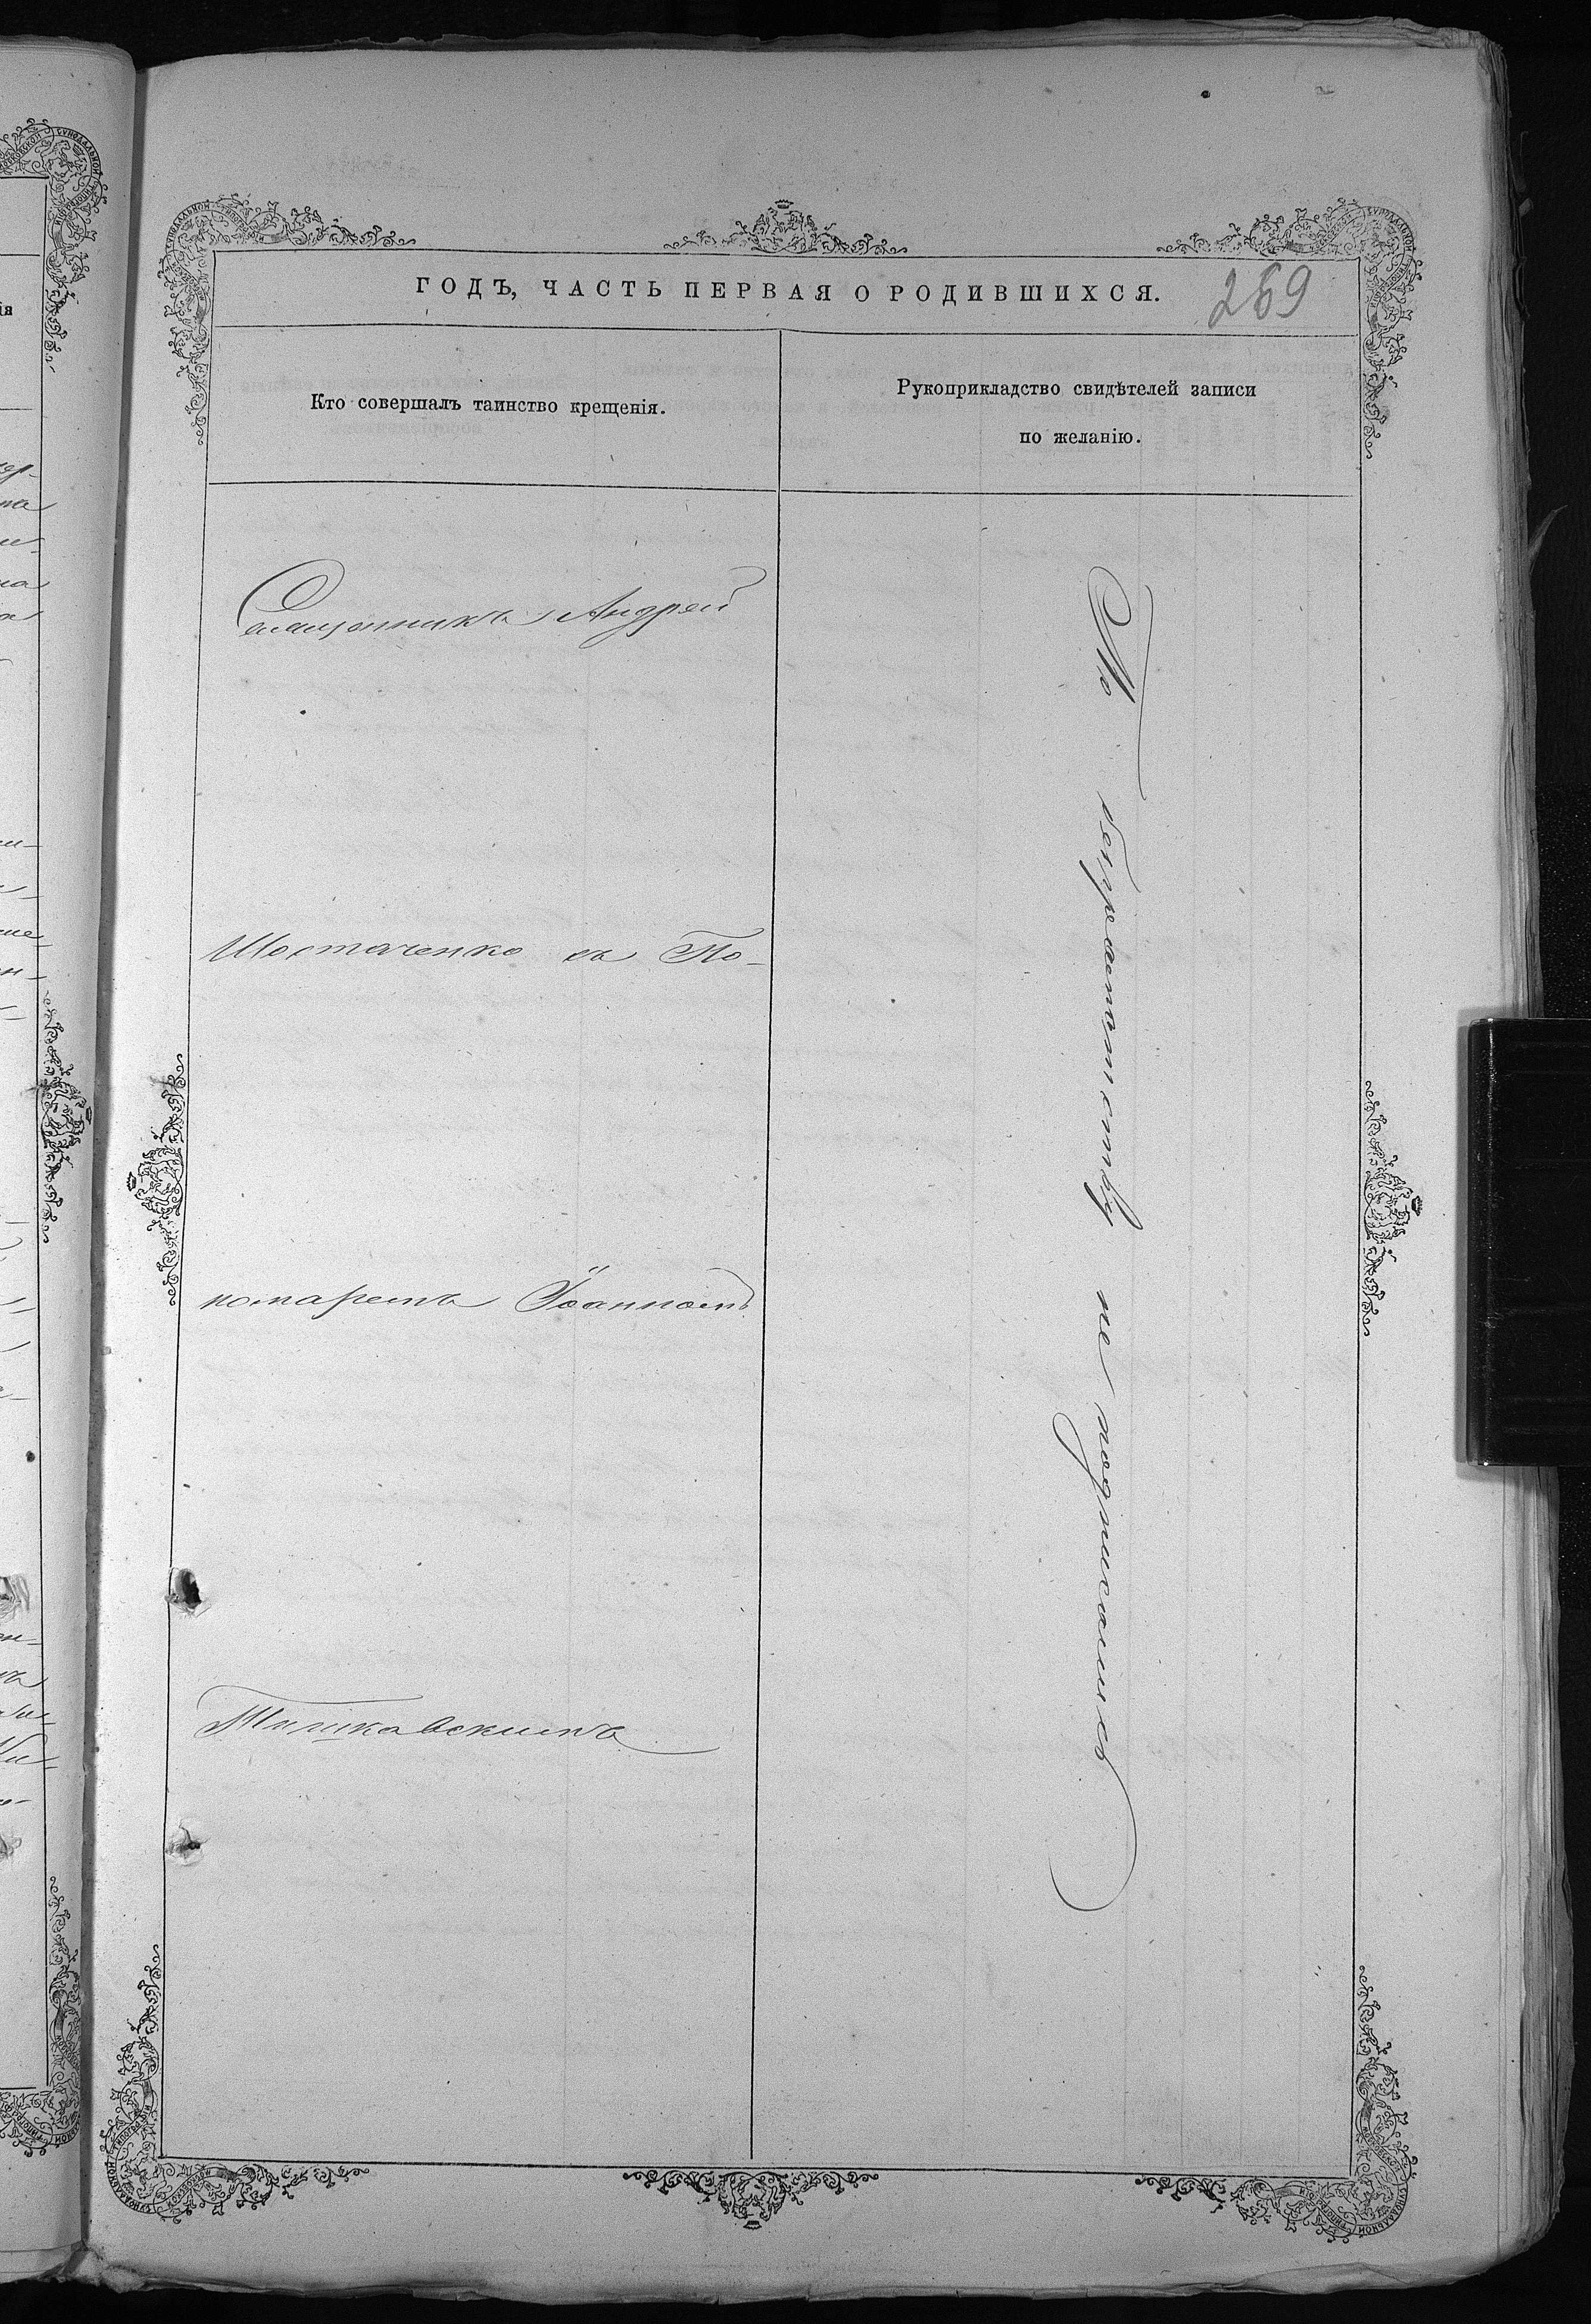 ГОДЪ, ЧАСТЬ ПЕРВАЯ О РОДИВШИХСЯ.
269
Кто совершалъ таинство крещенія.
Рукоприкладство свидѣтелей записи
по желанію.
Священникъ Андрей
Шостаченко съ По-
номаремъ Іоанномъ
Тишковскимъ
По неграмотности не подписались